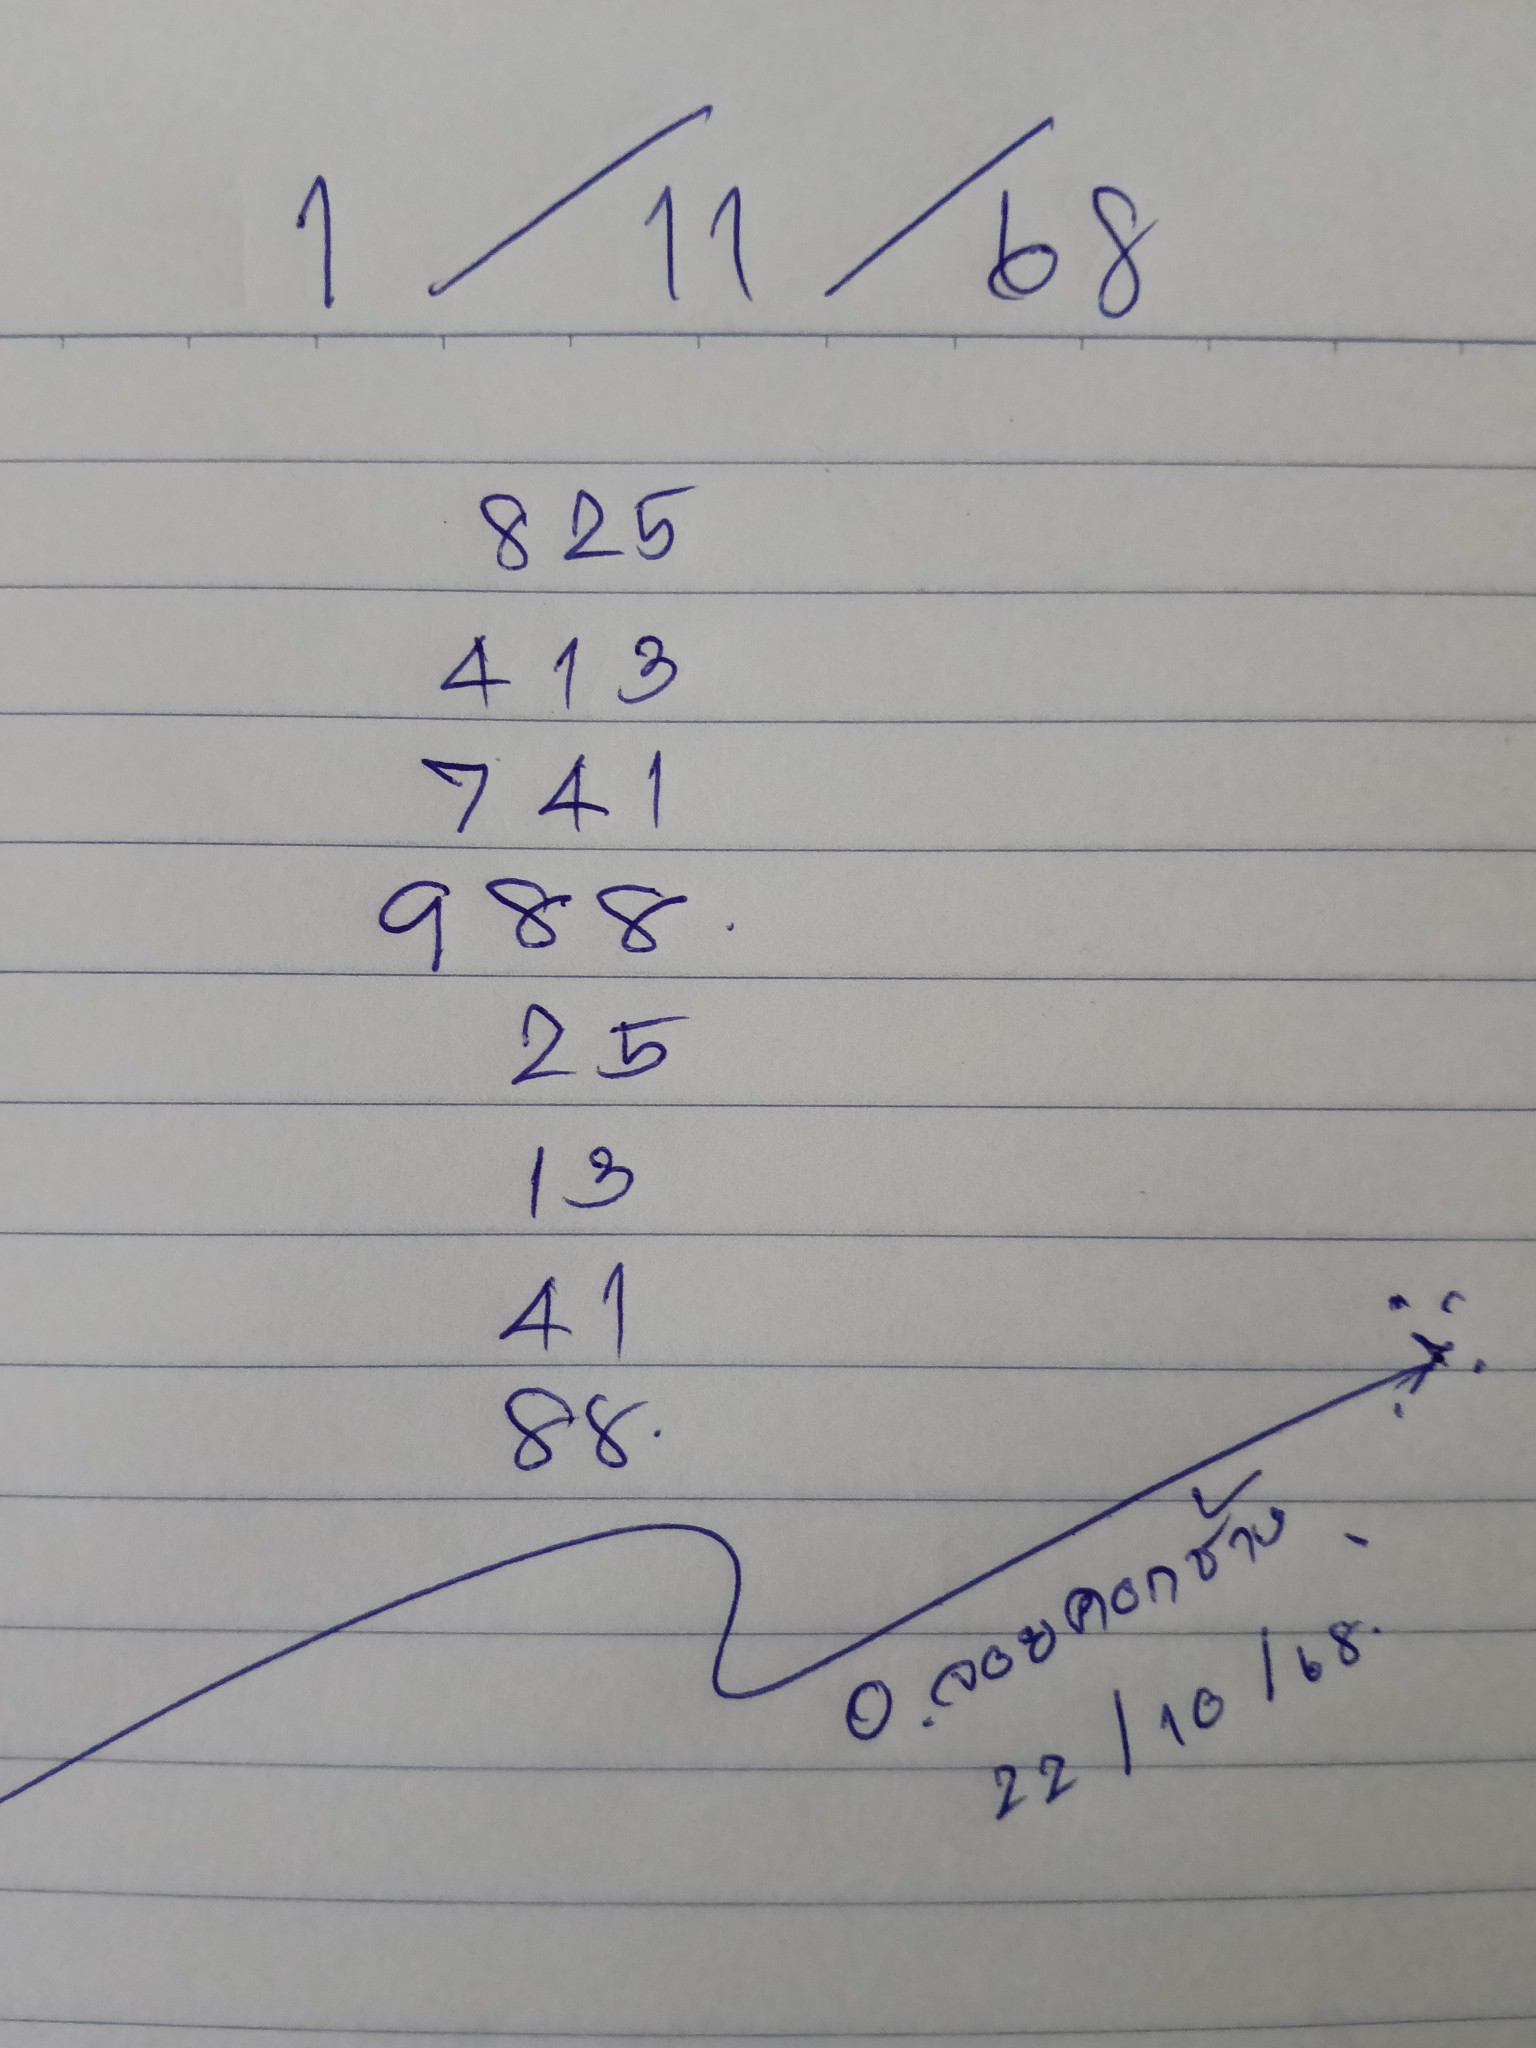 1/11/68
825
413
741
988.
25
13
41
88.
อ.ลอยคอกช้าง
22/10/68.